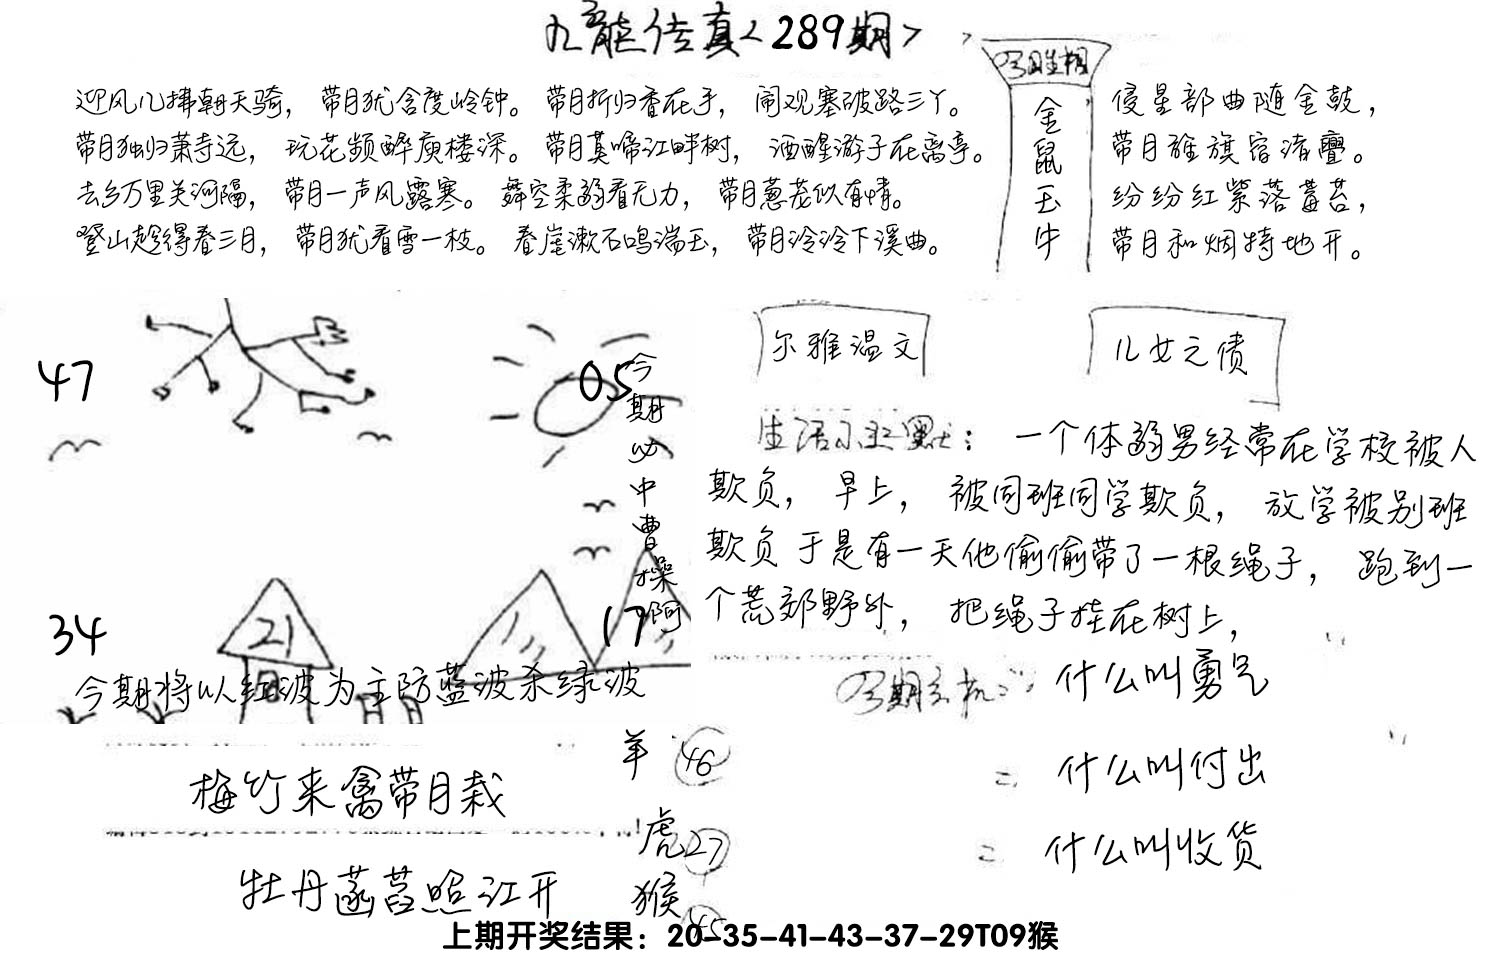 九龙传真<289期>
迎风几拂朝天骑，带月犹含度岭钟。带月折归香在手，闹观塞破路三丫。
带月独归萧寺远，玩花频醉庾楼深。带月莫啼江畔树，酒醒游子在离亭。
去乡万里关河隔，带月一声风露寒。舞空柔弱看无力，带月葱茏似有情。
登山趁得春三月，带月犹看雪一枝。看崖漱石鸣湍玉，带月泠泠下溪曲。
今日生相
金鼠玉牛
侵星部曲随金鼓，
带月旌旗宿渚亹。
纷纷红紫落莓苔，
带月和烟特地开。
47
05
34
21
17
今期必中曹操阿
今期将以红波为主防蓝波杀绿波
尔雅温文
儿女之债
生活小幽默：一个体弱男经常在学校被人
欺负，早上，被同班同学欺负，放学被别班
欺负于是有一天他偷偷带了一根绳子，跑到一
个荒郊野外，把绳子挂在树上，
今期玄机：什么叫勇气
= 什么叫付出
= 什么叫收货
梅竹来禽带月栽
牡丹菡萏照江开
羊 46
虎 27
猴 45
上期开奖结果：20-35-41-43-37-29T09猴